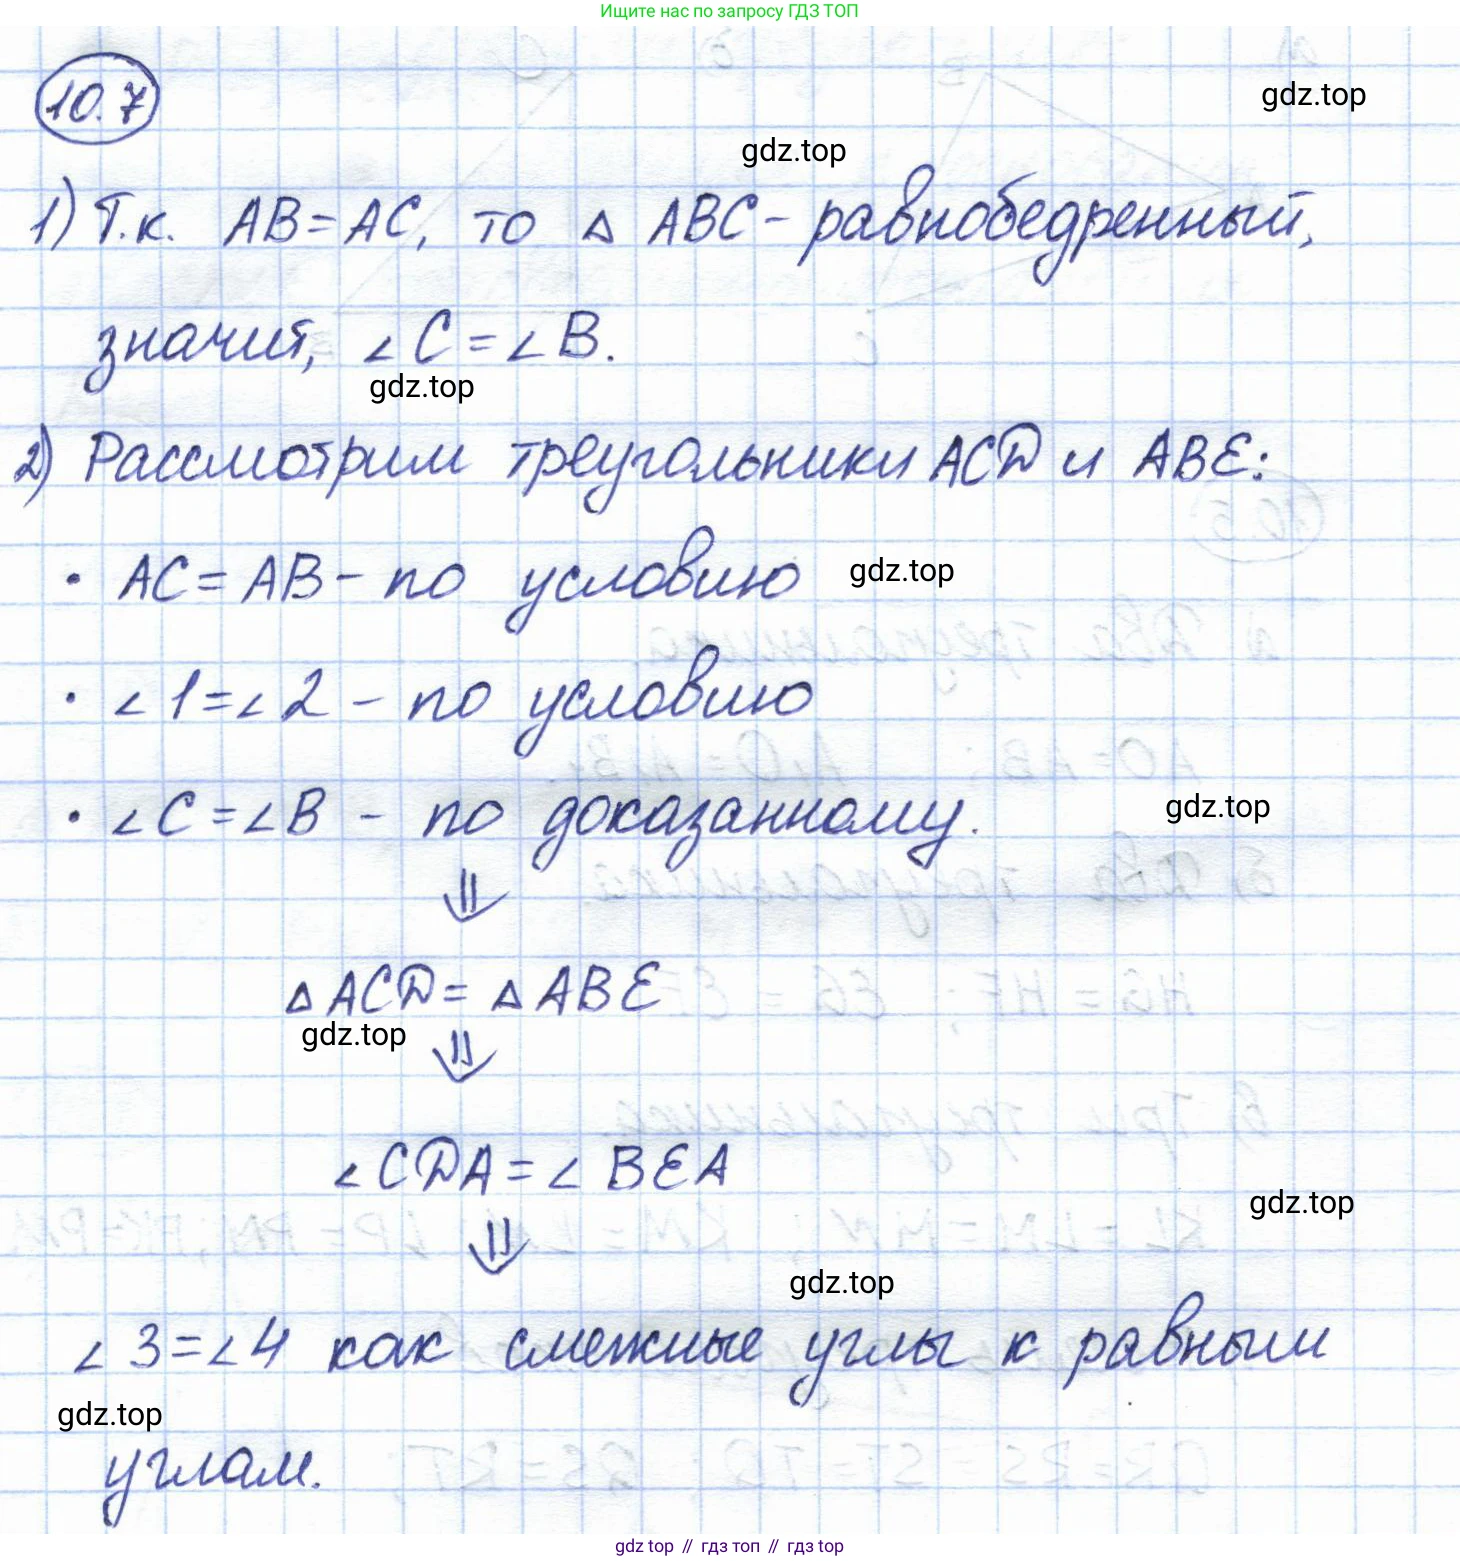 Ищите нас по запросу ГДЗ ТОП
10.7
gdz.top
gdz.top
1) Т.к. AB=AC, то △ ABC- равнобедренный,
значит, ∠C=∠B.
gdz.top
2) Рассмотрим треугольники ACD и ABE:
• AC=AB- по условию
gdz.top
• ∠1=∠2 - по условию
• ∠C=∠B - по доказанному.
gdz.top
⇓
△ACD= △ABE
gdz.top
⇓
∠CDA=∠BEA
gdz.top
⇓
gdz.top
∠3=∠4 как смежные углы к равным
gdz.top
углам.
gdz.top // гдз топ // гдз.top